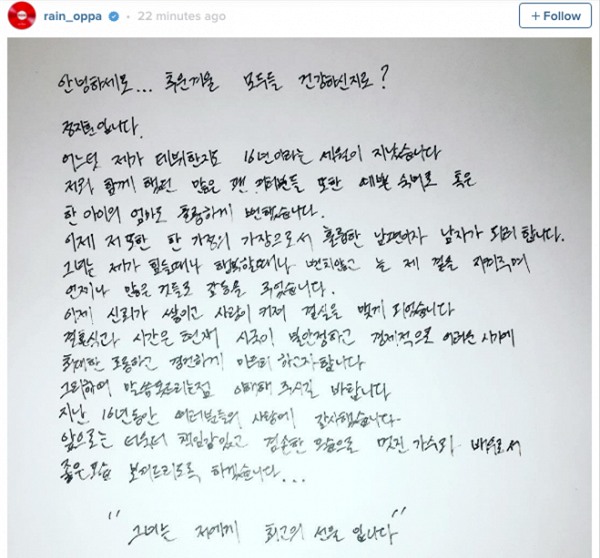 rain_oppa · 22 minutes ago
+ Follow
안녕하세요... 추운겨울 모두들 건강하신지요?
정지훈입니다.
어느덧 제가 데뷔한지도 16년이라는 세월이 지났습니다
저와 함께 했던 많은 팬 여러분들 또한 예쁜 숙녀로 혹은
한 아이의 엄마로 훌륭하게 변했습니다.
이제 저 또한 한 가정의 가장으로서 훌륭한 남편이자 남자가 되려 합니다.
그녀는 제가 힘들때나 행복할때나 변치않고 늘 제 곁을 지켜주며
언제나 많은 것들로 감동을 주었습니다.
이제 신뢰가 쌓이고 사랑이 커져 결실을 맺게 되었습니다
결혼식과 시간은 현재 시국이 불안정하고 경제적으로 어려운 시기에
최대한 조용하고 경건하게 미루려 하고자합니다
그리하여 말씀못드리는점 이해해 주시길 바랍니다
지난 16년동안 여러분들의 사랑에 감사했습니다
앞으로는 더욱더 책임감있고 겸손한 모습으로 멋진 가수와 배우로서
좋은모습 보여드리도록 하겠습니다...
"그녀는 저에게 최고의 선물 입니다"